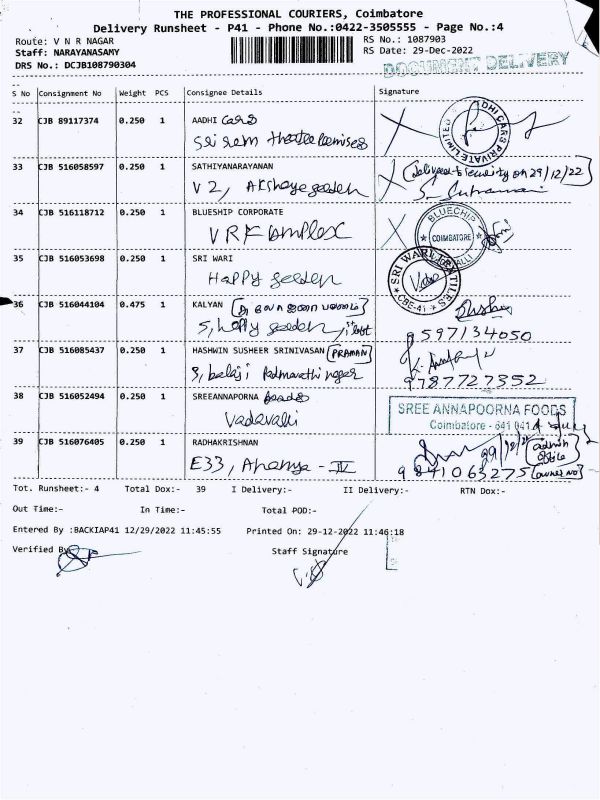 THE PROFESSIONAL COURIERS, Coimbatore
Delivery Runsheet - P41 - Phone No.:0422-3505555 - Page No.:4
Route: V N R NAGAR
RS No.: 1087903
Staff: NARAYANASAMY
RS Date: 29-Dec-2022
DRS No.: DCJB108790304
DOCUMENT DELIVERY
S No Consignment No Weight PCS Consignee Details Signature
32 CJB 89117374 0.250 1 AADHI Cars
Sri ram theatre
ADHI CARS PRIVATE LIMITED
33 CJB 516058597 0.250 1 SATHIYANARAYANAN
(delivered to security on 29/12/22)
V2, Akshaya garden
34 CJB 516118712 0.250 1 BLUESHIP CORPORATE
VRK Complex
BLUECHIP
COIMBATORE
35 CJB 516053698 0.250 1 SRI WARI
Happy garden
SRI WARI TEXTILES
CBE-41
36 CJB 516044104 0.475 1 KALYAN
5, happy garden,
9597134050
37 CJB 516085437 0.250 1 HASHWIN SUSHEER SRINIVASAN (PRAMAN)
8, balaji Padmavathi nagar
9787727352
38 CJB 516052494 0.250 1 SREEANNAPORNA foods
Vadavalli
SREE ANNAPOORNA FOODS
Coimbatore - 641 041
39 CJB 516076405 0.250 1 RADHAKRISHNAN
29/12/22 (admin office)
E33, Ananya - IV
9841063275 (owner no)
Tot. Runsheet:- 4 Total Dox:- 39 I Delivery:- II Delivery:- RTN Dox:-
Out Time:- In Time:- Total POD:-
Entered By :BACKIAP41 12/29/2022 11:45:55 Printed On: 29-12-2022 11:46:18
Verified By
Staff Signature